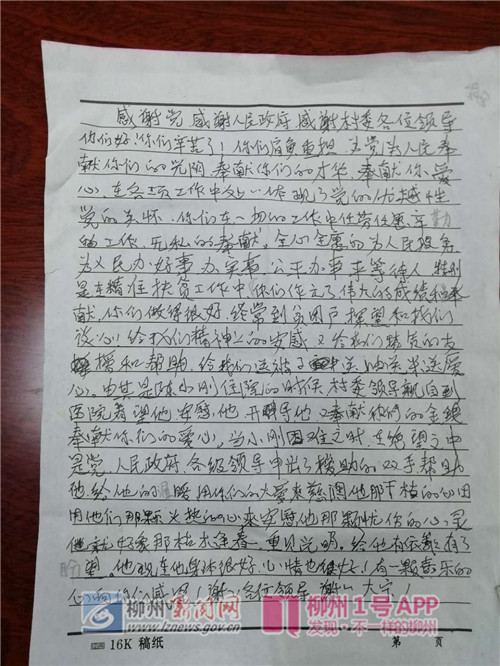 感谢党 感谢人民政府 感谢村委各位领导
你们好!你们辛苦了!你们肩负重担 为党为人民奉
献你们的光阴 奉献你们的才华 奉献你们爱
心。在各项工作中处处体现了党的优越性
党的关怀。你们在一切的工作中任劳任怨辛勤
的工作,无私的奉献,全心全意的为人民服务
为人民办好事 办实事 公平办事 平等待人 特别
是在精准扶贫工作中 你们作立了伟大的成绩和奉
献,你们做得很好,经常到贫困户探望和我们
谈心 给我们精神上的安慰 又给我们物质的支
援和帮助,给我们送
心。尤其是陈小刚住院的时候 村委领导亲自到
医院看望他 安慰他 开导他 又奉献你们的金钱
奉献你们的爱心。当小刚困难之时 在绝望之中
是党,人民政府,各级领导伸出了援助的双手帮助
他,给他的温暖 用你们的大爱来慈润他那干枯的心田
用他们那颗火热的心来安慰他那颗忧伤的心灵
他就好象那枯木逢春 重见光明。给他有依靠有了
盼望 他现在他身体很好,心情也很好!有一颗喜乐的
心 感恩 谢谢各位领导 谢谢大家
柳州新闻网
www.lznews.gov.cn
柳州1号APP
发现·不一样的柳州
16K 稿纸
第 页